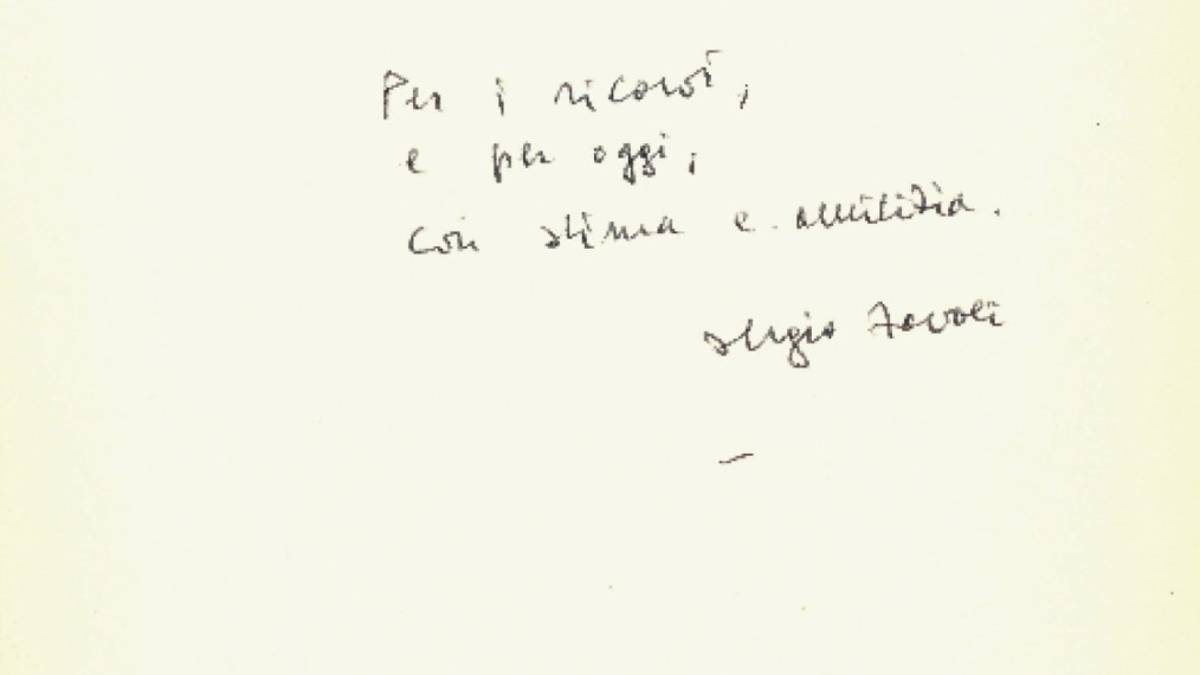 Per i ricordi,
e per oggi,
con stima e amicizia.
Sergio Zavoli